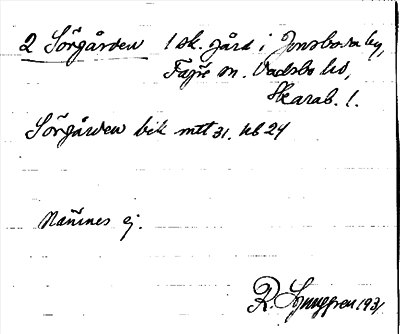 2 Sörgården 1 sk. gård i Jonsboda by,
Fägre sn. Vadsbo hd,
Skarab. l.
Sörgården bik mtt 31. kb 24
Nämnes ej.
R. Ljunggren 1931